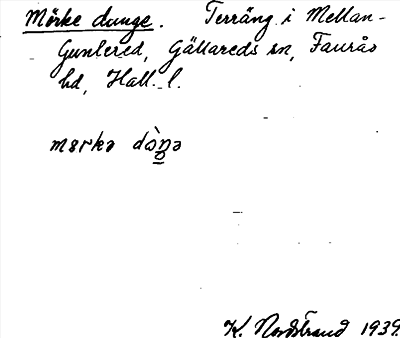 Mörke dunge. Terräng i Mellan-
Gunlered, Gällareds sn, Faurås
hd, Hall. l.
mørkə dòŋə
K. Nordstrand 1939.